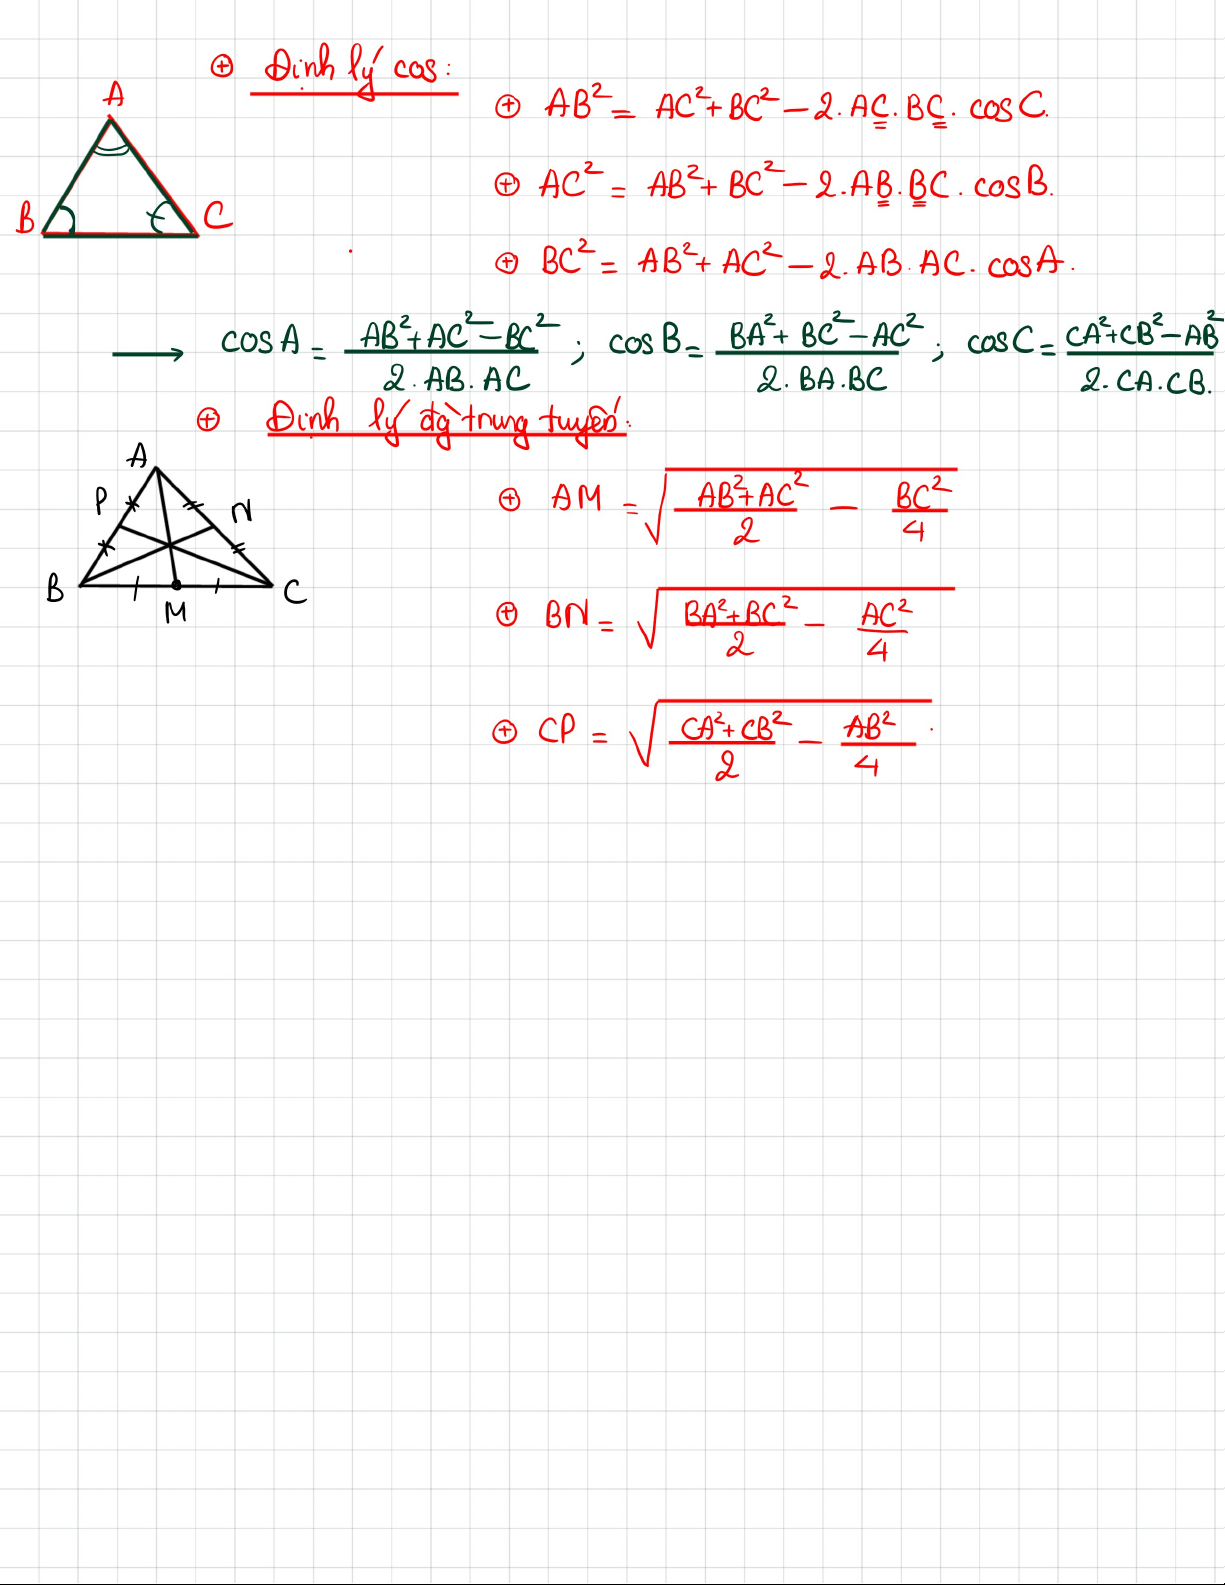 ⊕ Định lý cos:
A
B
C
⊕ AB² = AC² + BC² − 2.AC.BC.cosC.
⊕ AC² = AB² + BC² − 2.AB.BC.cosB.
⊕ BC² = AB² + AC² − 2.AB.AC.cosA.
⟶ cosA = (AB² + AC² − BC²)/(2.AB.AC) ; cosB = (BA² + BC² − AC²)/(2.BA.BC) ; cosC = (CA² + CB² − AB²)/(2.CA.CB).
⊕ Định lý đg` trung tuyến:
A
P
N
B
M
C
⊕ AM = √((AB² + AC²)/2 − BC²/4)
⊕ BN = √((BA² + BC²)/2 − AC²/4)
⊕ CP = √((CA² + CB²)/2 − AB²/4).